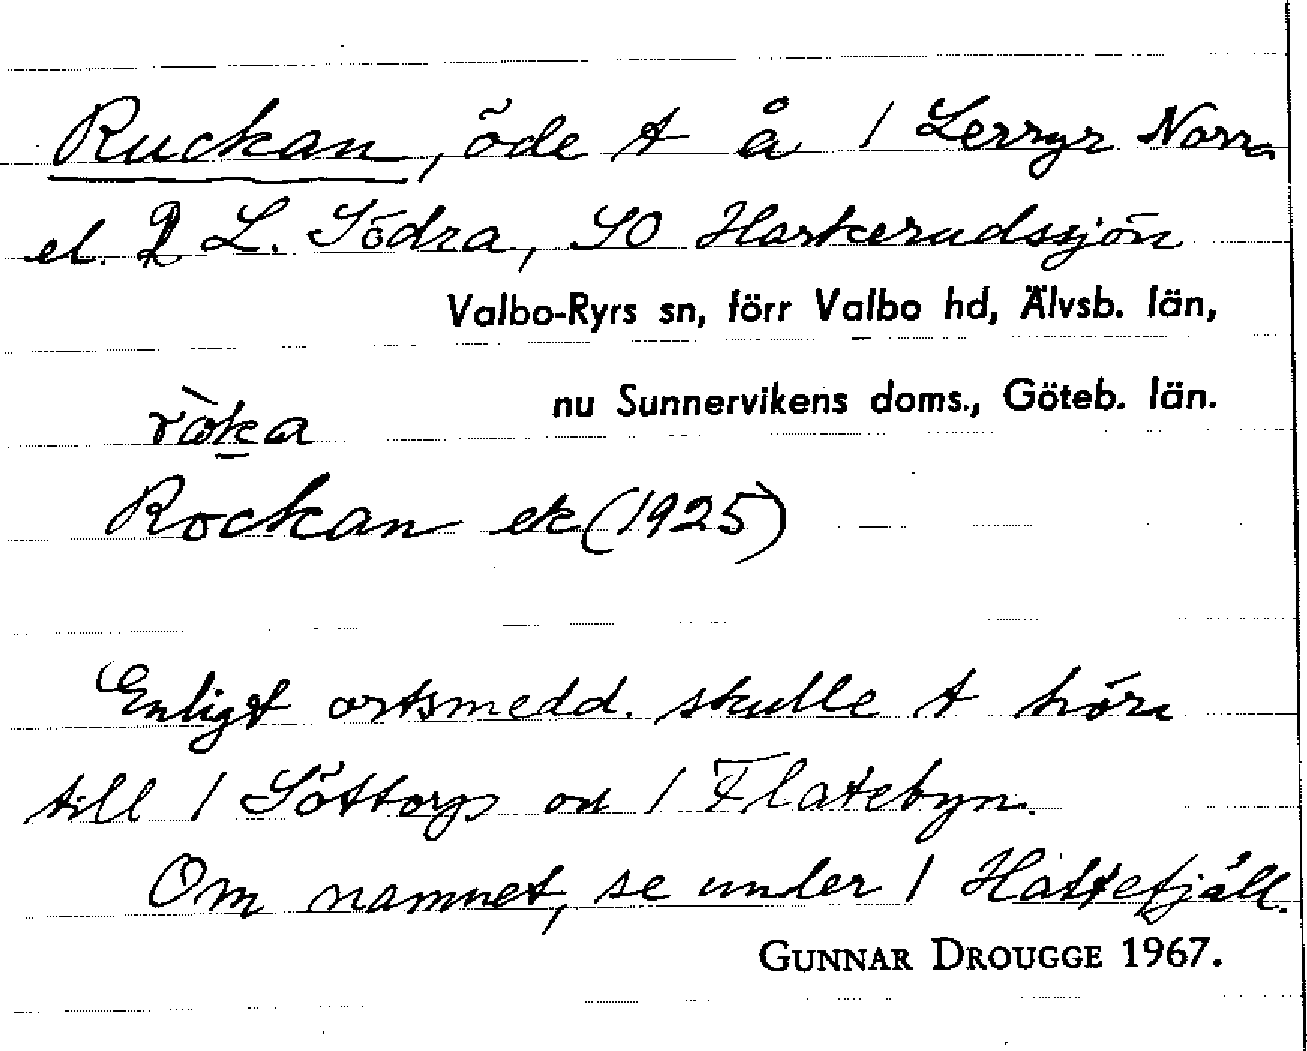 Ruckan, öde t å 1 Lerryr Norra
el. 2 L. Södra, SO Harkerudssjön
Valbo-Ryrs sn, förr Valbo hd, Älvsb. län,
nu Sunnervikens doms., Göteb. län.
ròka
Rockan ek (1925)
Enligt ortsmedd. skulle t höra
till 1 Söttorp on 1 Flatebyn.
Om namnet, se under 1 Håltefjäll.
GUNNAR DROUGGE 1967.